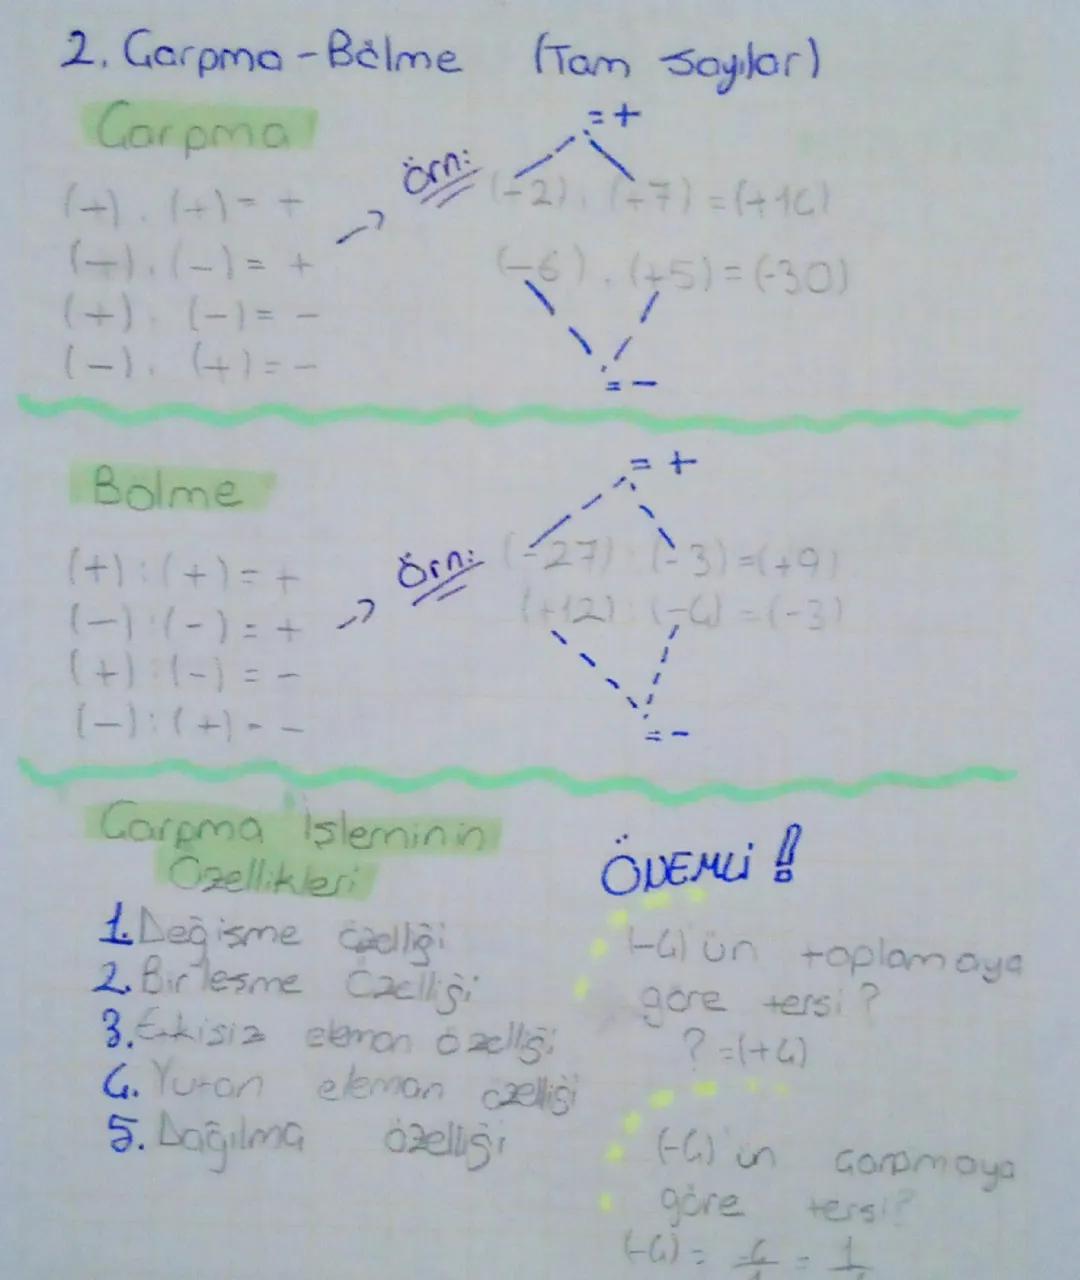 2. Çarpma - Bölme (Tam Sayılar)
Çarpma
(+) . (+) = +
(-) . (-) = +
(+) . (-) = -
(-) . (+) = -
Örn:
= +
(+2) . (+7) = (+14)
(-6) . (+5) = (-30)
= -
Bölme
(+) : (+) = +
(-) : (-) = +
(+) : (-) = -
(-) : (+) = -
Örn:
= +
(-27) : (-3) = (+9)
(+12) : (-4) = (-3)
= -
Çarpma İşleminin
Özellikleri
1. Değişme özelliği
2. Birleşme özelliği
3. Etkisiz eleman özelliği
4. Yutan eleman özelliği
5. Dağılma özelliği
ÖNEMLİ !
(-4)'ün toplamaya
göre tersi ?
? = (+4)
(-4)'ün çarpmaya
göre tersi?
(-4) =